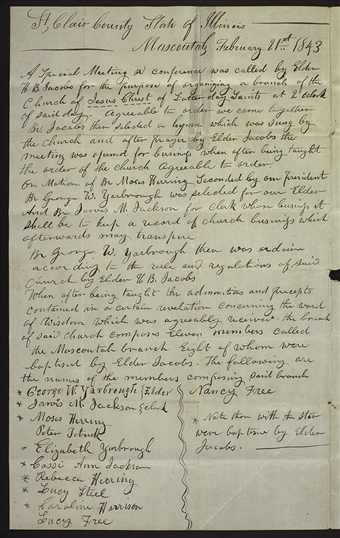 St, Clair County State of Illinois
Mascoutah, February 21st 1843
A Special Meeting or conference was called by Elder
H B Jacobs for the purpose of organizing a branch of the
Church of Jesus Christ of Latter day Saints at 2 oclock
of said day. Agreeable to order we came together
Br Jacobs then selected a hymn which was sung by
the church and after prayer by Elder Jacobs the
meeting was opened for business when after being taught
the order of the church agreable to order
On Motion of Br Moses Herring Seconded by our president
Br George W. Yarbrough was selected for our Elder
And Br Jarvis M. Jackson for Clerk whose business it
shall be to keep a record of church business which
afterwards may transpire
Br George W. Yarbrough then was ordain
according to the rule and regulations of said
Church by Elder H B. Jacobs
When after being taught the admonitions and precepts
contained in a certain revelation concerning the word
of Wisdom which was agreeably received the branch
of said church composes Eleven members called
the Mascoutah branch Eight of whom were
baptised by Elder Jacobs. The following are
the names of the members composing said branch
* George W. Yarbrough Elder
* Jarvis M. Jackson Clerk
* Moses Herring
Peter
* Elizabeth Yarbrough
* Cassi Ann Jackson
* Rebecca Herring
* Lucy Steel
* Caroline Herrison
Lucy Free
Nancy Free
* Note them with the Star
were baptise by Elder
Jacobs.